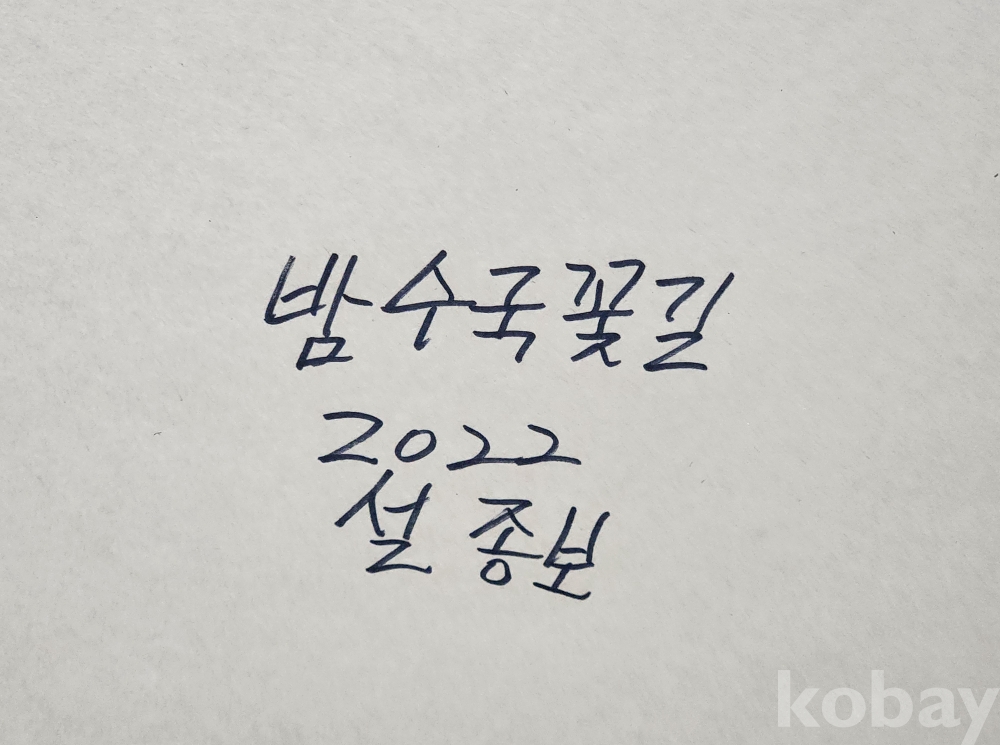 밤수국꽃길
2022
설종보
kobay